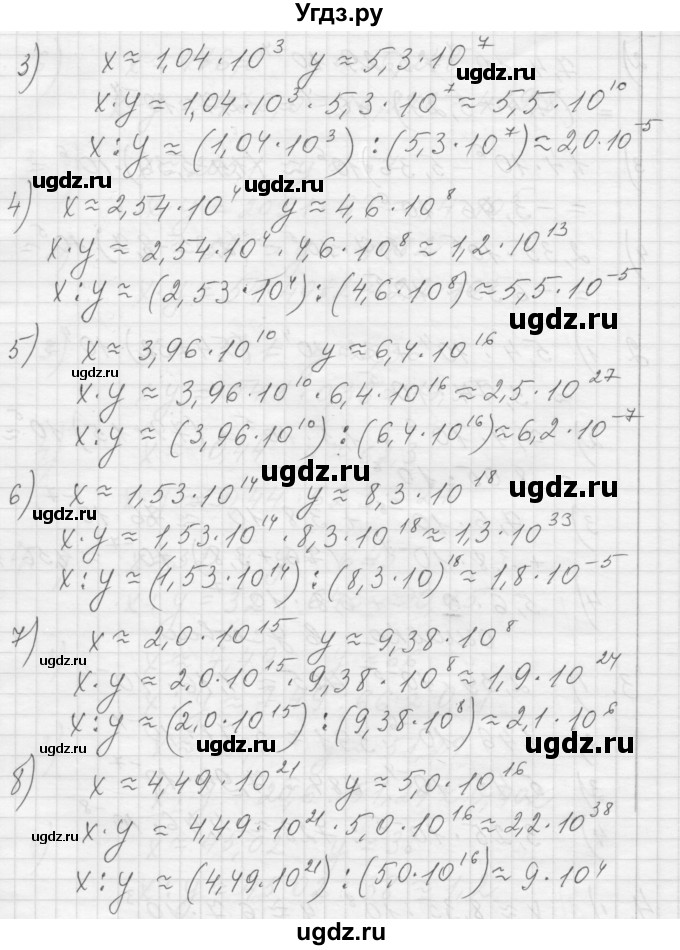 Угдз.ру
3) x ≈ 1,04·10³ y ≈ 5,3·10⁷
ugdz.ru
x·y ≈ 1,04·10³·5,3·10⁷ ≈ 5,5·10¹⁰
x:y ≈ (1,04·10³):(5,3·10⁷) ≈ 2,0·10⁻⁵
ugdz.ru ugdz.ru
4) x ≈ 2,54·10⁴ y ≈ 4,6·10⁸
x·y ≈ 2,54·10⁴·4,6·10⁸ ≈ 1,2·10¹³
x:y ≈ (2,53·10⁴):(4,6·10⁸) ≈ 5,5·10⁻⁵
ugdz.ru
5) x ≈ 3,96·10¹⁰ y ≈ 6,4·10¹⁶
ugdz.ru
x·y ≈ 3,96·10¹⁰·6,4·10¹⁶ ≈ 2,5·10²⁷
x:y ≈ (3,96·10¹⁰):(6,4·10¹⁶) ≈ 6,2·10⁻⁷
ugdz.ru
6) x ≈ 1,53·10¹⁴ y ≈ 8,3·10¹⁸
ugdz.ru
ugdz.ru
x·y ≈ 1,53·10¹⁴·8,3·10¹⁸ ≈ 1,3·10³³
x:y ≈ (1,53·10¹⁴):(8,3·10)¹⁸ ≈ 1,8·10⁻⁵
7) x ≈ 2,0·10¹⁵ y ≈ 9,38·10⁸
ugdz.ru
x·y ≈ 2,0·10¹⁵·9,38·10⁸ ≈ 1,9·10²⁴
x:y ≈ (2,0·10¹⁵):(9,38·10⁸) ≈ 2,1·10⁶
ugdz.ru ugdz.ru ugdz.ru
8) x ≈ 4,49·10²¹ y ≈ 5,0·10¹⁶
x·y ≈ 4,49·10²¹·5,0·10¹⁶ ≈ 2,2·10³⁸
ugdz.ru
x:y ≈ (4,49·10²¹):(5,0·10¹⁶) ≈ 9·10⁴
ugdz.ru